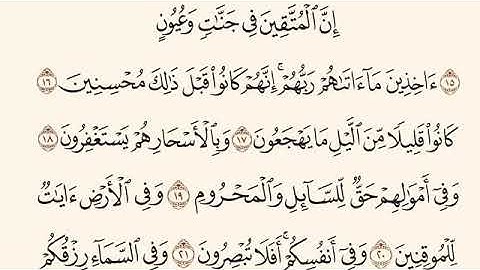 إِنَّ ٱلْمُتَّقِينَ فِى جَنَّـٰتٍ وَعُيُونٍ
١٥ ءَاخِذِينَ مَآ ءَاتَىٰهُمْ رَبُّهُمْ ۚ إِنَّهُمْ كَانُوا۟ قَبْلَ ذَٰلِكَ مُحْسِنِينَ ١٦
كَانُوا۟ قَلِيلًا مِّنَ ٱلَّيْلِ مَا يَهْجَعُونَ ١٧ وَبِٱلْأَسْحَارِ هُمْ يَسْتَغْفِرُونَ ١٨
وَفِىٓ أَمْوَٰلِهِمْ حَقٌّ لِّلسَّآئِلِ وَٱلْمَحْرُومِ ١٩ وَفِى ٱلْأَرْضِ ءَايَـٰتٌ
لِّلْمُوقِنِينَ ٢٠ وَفِىٓ أَنفُسِكُمْ ۚ أَفَلَا تُبْصِرُونَ ٢١ وَفِى ٱلسَّمَآءِ رِزْقُكُمْ